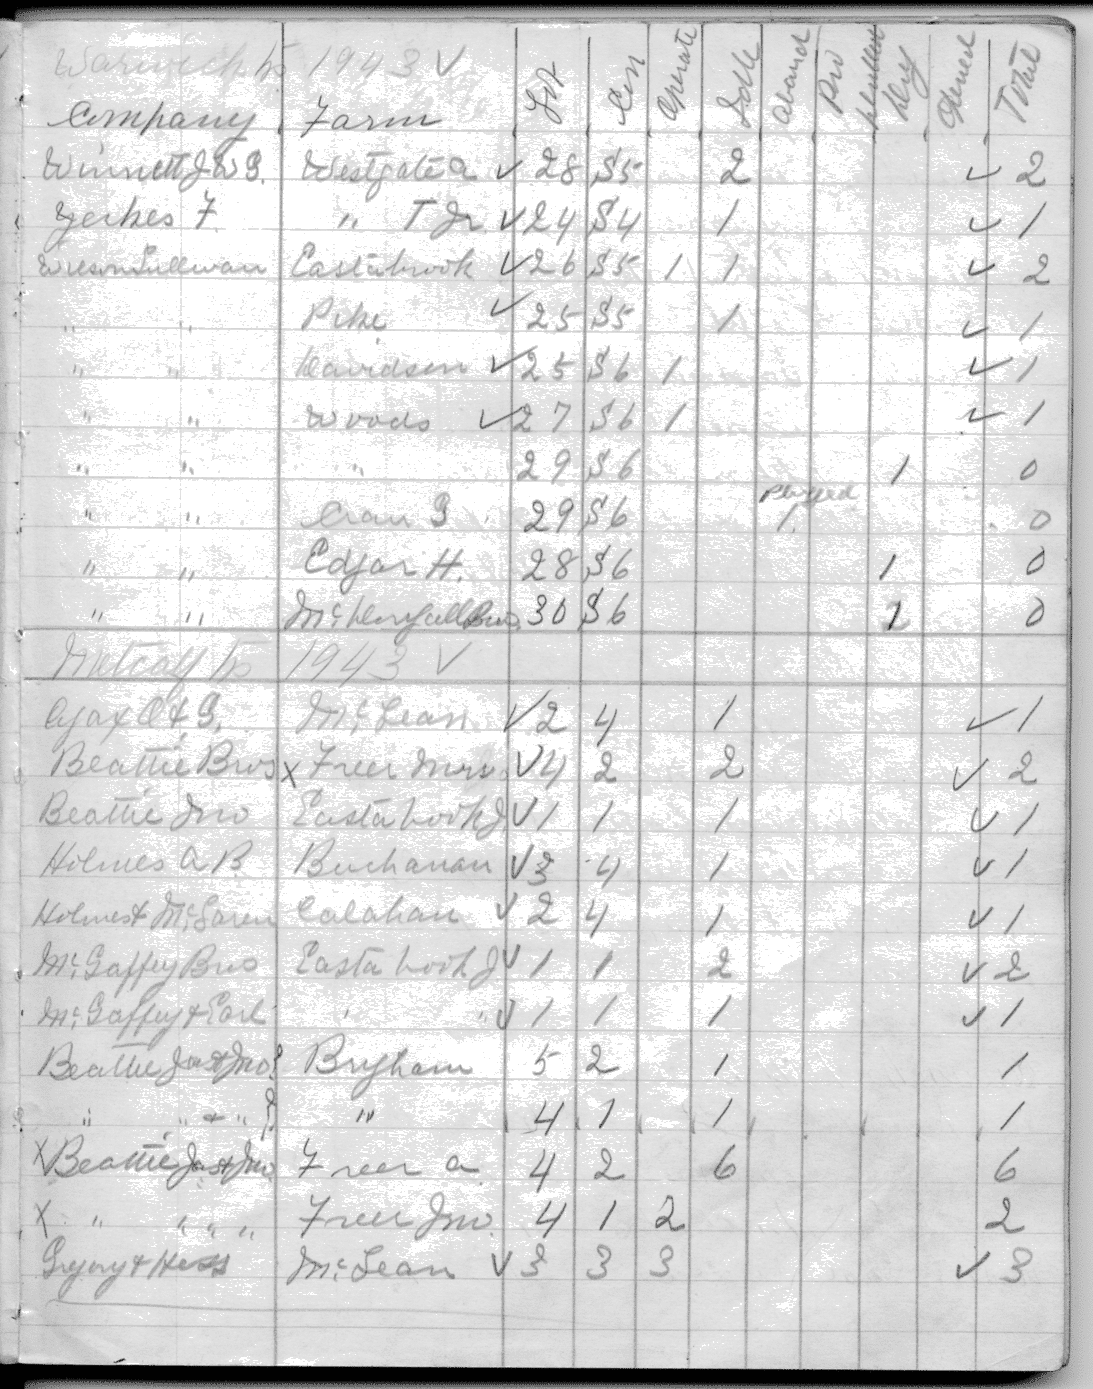 Warwick tp 1943 ✓
Company Farm Lot Con Operate Idle Aband Pro Dry Total
Winnett J W G. Westgate A ✓ 28 S5 2 ✓ 2
Yerkes F " T Jr ✓ 24 S4 1 ✓ 1
Wilson Sullivan Eastabrook ✓ 26 S5 1 1 ✓ 2
" " Pike ✓ 25 S5 1 ✓ 1
" " Davidson ✓ 25 S6 1 ✓ 1
" " Woods ✓ 27 S6 1 ✓ 1
" " " 29 S6 1 0
plugged
" " 29 S6 1 0
" " Edgar H. 28 S6 1 0
" " McDougall Bros. 30 S6 0
Metcalf tp 1943 ✓
Ajax O & G. McLean ✓ 2 4 1 ✓ 1
Beattie Bros x Freer Mrs ✓ 4 2 2 ✓ 2
Beattie Jno Eastabrook J ✓ 1 1 1 ✓ 1
Holmes A B Buchanan ✓ 3 4 1 ✓ 1
Holmes & McLaren Calahan ✓ 2 4 1 ✓ 1
McGaffey Bros Eastabrook J ✓ 1 1 2 ✓ 2
McGaffey & Earl " " ✓ 1 1 1 ✓ 1
Beattie Jas & Jno Brigham 5 2 1 1
" " & " " 4 1 1 1
X Beattie Jas & Jno. Freer A 4 2 6 6
X " " " " Freer Jno. 4 1 2 2
Gregory & Hess McLean ✓ 3 3 3 ✓ 3